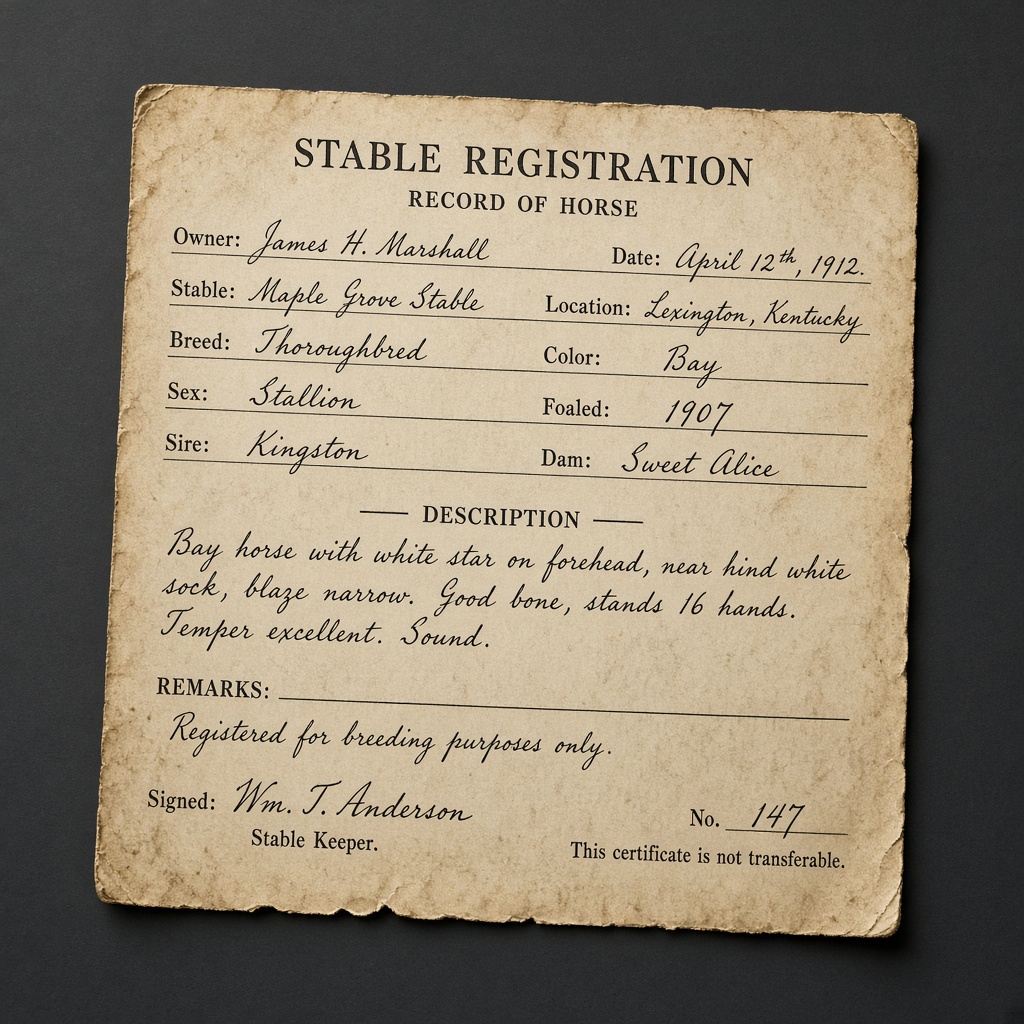 STABLE REGISTRATION
RECORD OF HORSE
Owner: James H. Marshall Date: April 12th, 1912.
Stable: Maple Grove Stable Location: Lexington, Kentucky
Breed: Thoroughbred Color: Bay
Sex: Stallion Foaled: 1907
Sire: Kingston Dam: Sweet Alice
DESCRIPTION
Bay horse with white star on forehead, near hind white
sock, blaze narrow. Good bone, stands 16 hands.
Temper excellent. Sound.
REMARKS:
Registered for breeding purposes only.
Signed: Wm. T. Anderson No. 147
Stable Keeper. This certificate is not transferable.